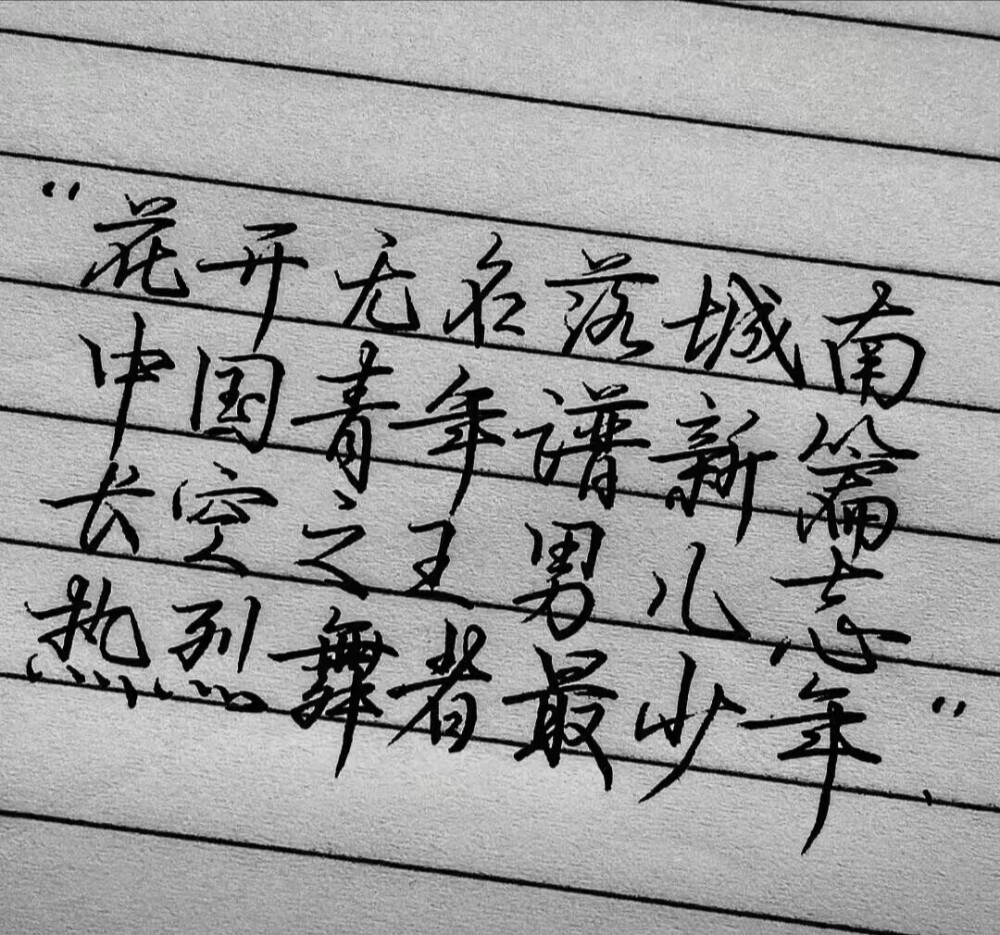 “花开无名落城南
中国青年谱新篇
长空之王男儿志
热烈舞者最少年.”